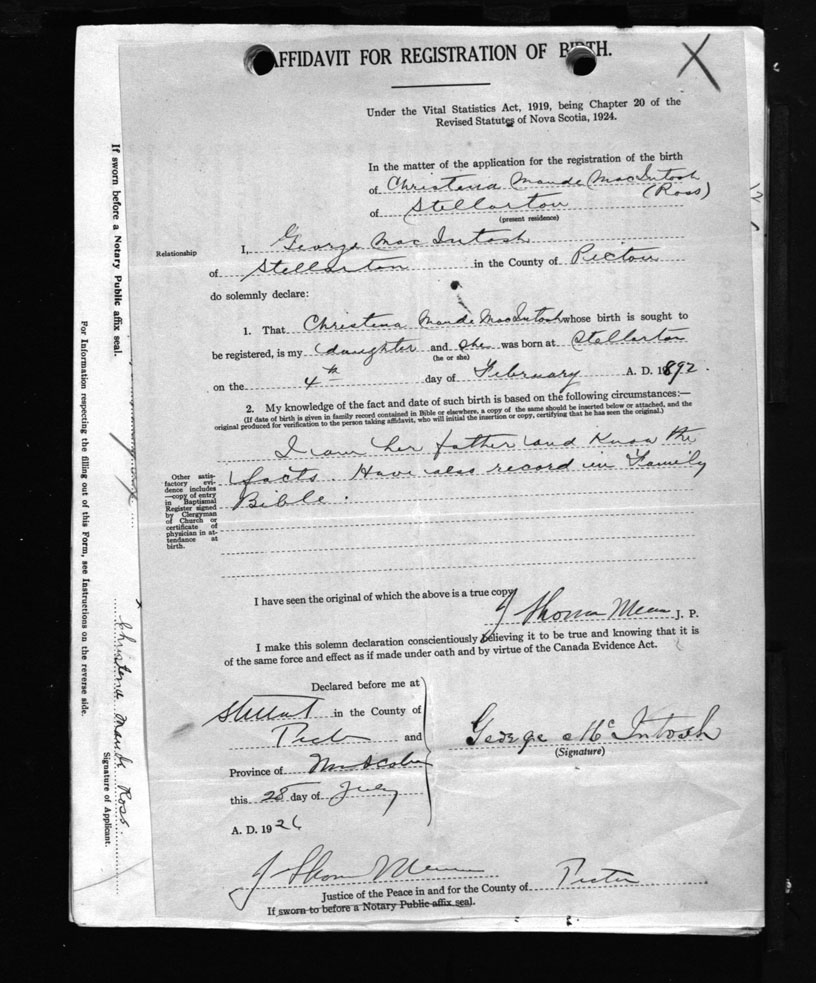 AFFIDAVIT FOR REGISTRATION OF BIRTH.
X
Under the Vital Statistics Act, 1919, being Chapter 20 of the
Revised Statutes of Nova Scotia, 1924.
In the matter of the application for the registration of the birth
of Christena Maude MacIntosh
(Ross)
of Stellarton
(present residence)
Relationship
I, George MacIntosh
of Stellarton in the County of Pictou
do solemnly declare:
1. That Christena Maude MacIntosh whose birth is sought to
be registered, is my daughter and she was born at Stellarton
(he or she)
on the 4th day of February A. D. 1892.
2. My knowledge of the fact and date of such birth is based on the following circumstances:—
(If date of birth is given in family record contained in Bible or elsewhere, a copy of the same should be inserted below or attached, and the
original produced for verification to the person taking affidavit, who will initial the insertion or copy, certifying that he has seen the original.)
I am her father and know the
facts. Have also record in Family
Bible.
Other satis-
factory evi-
dence includes
—copy of entry
in Baptismal
Register signed
by Clergyman
of Church or
certificate of
physician in at-
tendance at
birth.
I have seen the original of which the above is a true copy
J Thomas J. P.
I make this solemn declaration conscientiously believing it to be true and knowing that it is
of the same force and effect as if made under oath and by virtue of the Canada Evidence Act.
Declared before me at
in the County of
Pictou and
Province of Nova Scotia
this 28 day of July
A. D. 1926
George McIntosh
(Signature)
J Thom
Justice of the Peace in and for the County of Pictou
If sworn to before a Notary Public affix seal.
If sworn before a Notary Public affix seal.
For Information respecting the filling out of this Form, see Instructions on the reverse side.
Christena Maude Ross.
Signature of Applicant.